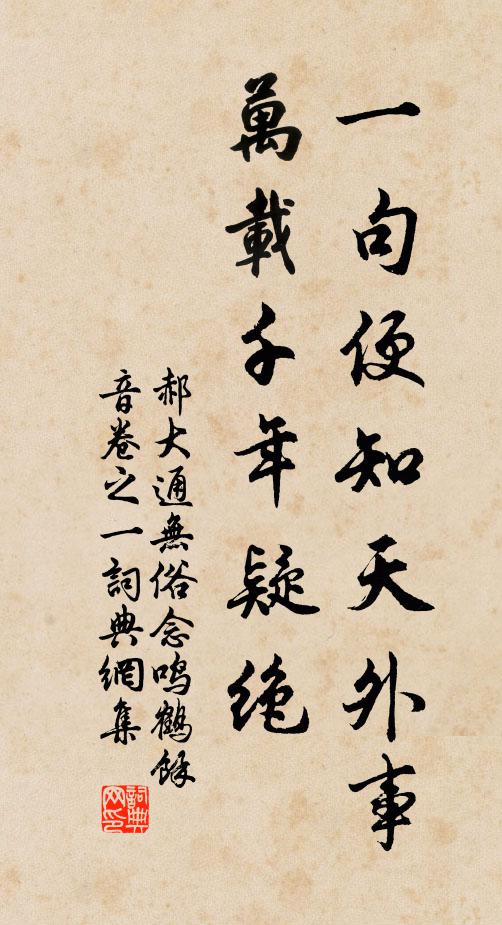 一句便知天外事
萬載千年疑絶
郝大通無俗念鳴鶴餘
音卷之一詞典網集
詞典网印